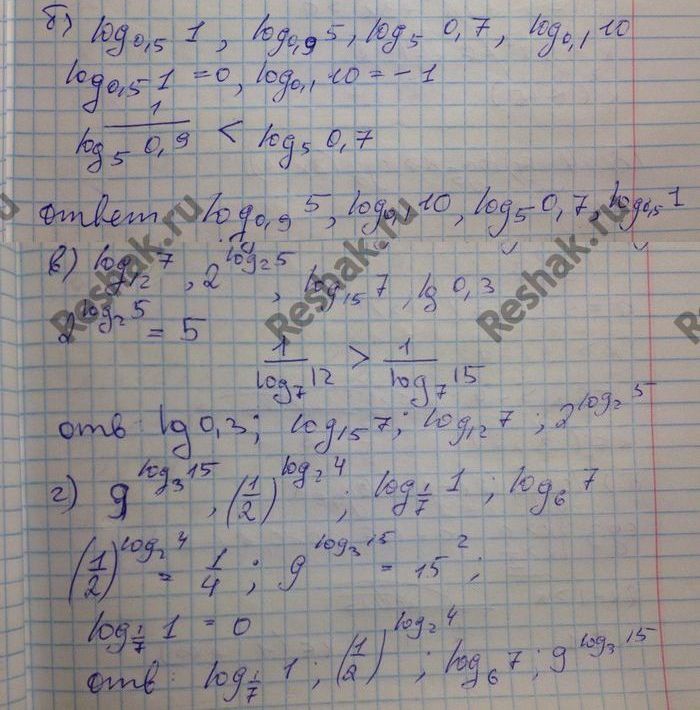 б) log₀,₅ 1 , log₀,₉ 5 , log₅ 0,7 , log₀,₁ 10
log₀,₅ 1 = 0 , log₀,₁ 10 = -1
1/(log₅ 0,9) < log₅ 0,7
ответ log₀,₉ 5 , log₀,₁ 10 , log₅ 0,7 , log₀,₅ 1
в) log₁₂ 7 , 2^(log₂ 5) , log₁₅ 7 , lg 0,3
2^(log₂ 5) = 5
1/(log₇ 12) > 1/(log₇ 15)
отв: lg 0,3 ; log₁₅ 7 ; log₁₂ 7 ; 2^(log₂ 5)
г) 9^(log₃ 15) , (1/2)^(log₂ 4) ; log_(1/7) 1 ; log₆ 7
(1/2)^(log₂ 4) = 1/4 ; 9^(log₃ 15) = 15² ;
log_(1/7) 1 = 0
отв: log_(1/7) 1 ; (1/2)^(log₂ 4) ; log₆ 7 ; 9^(log₃ 15)
Reshak.ru
Reshak.ru
Reshak.ru